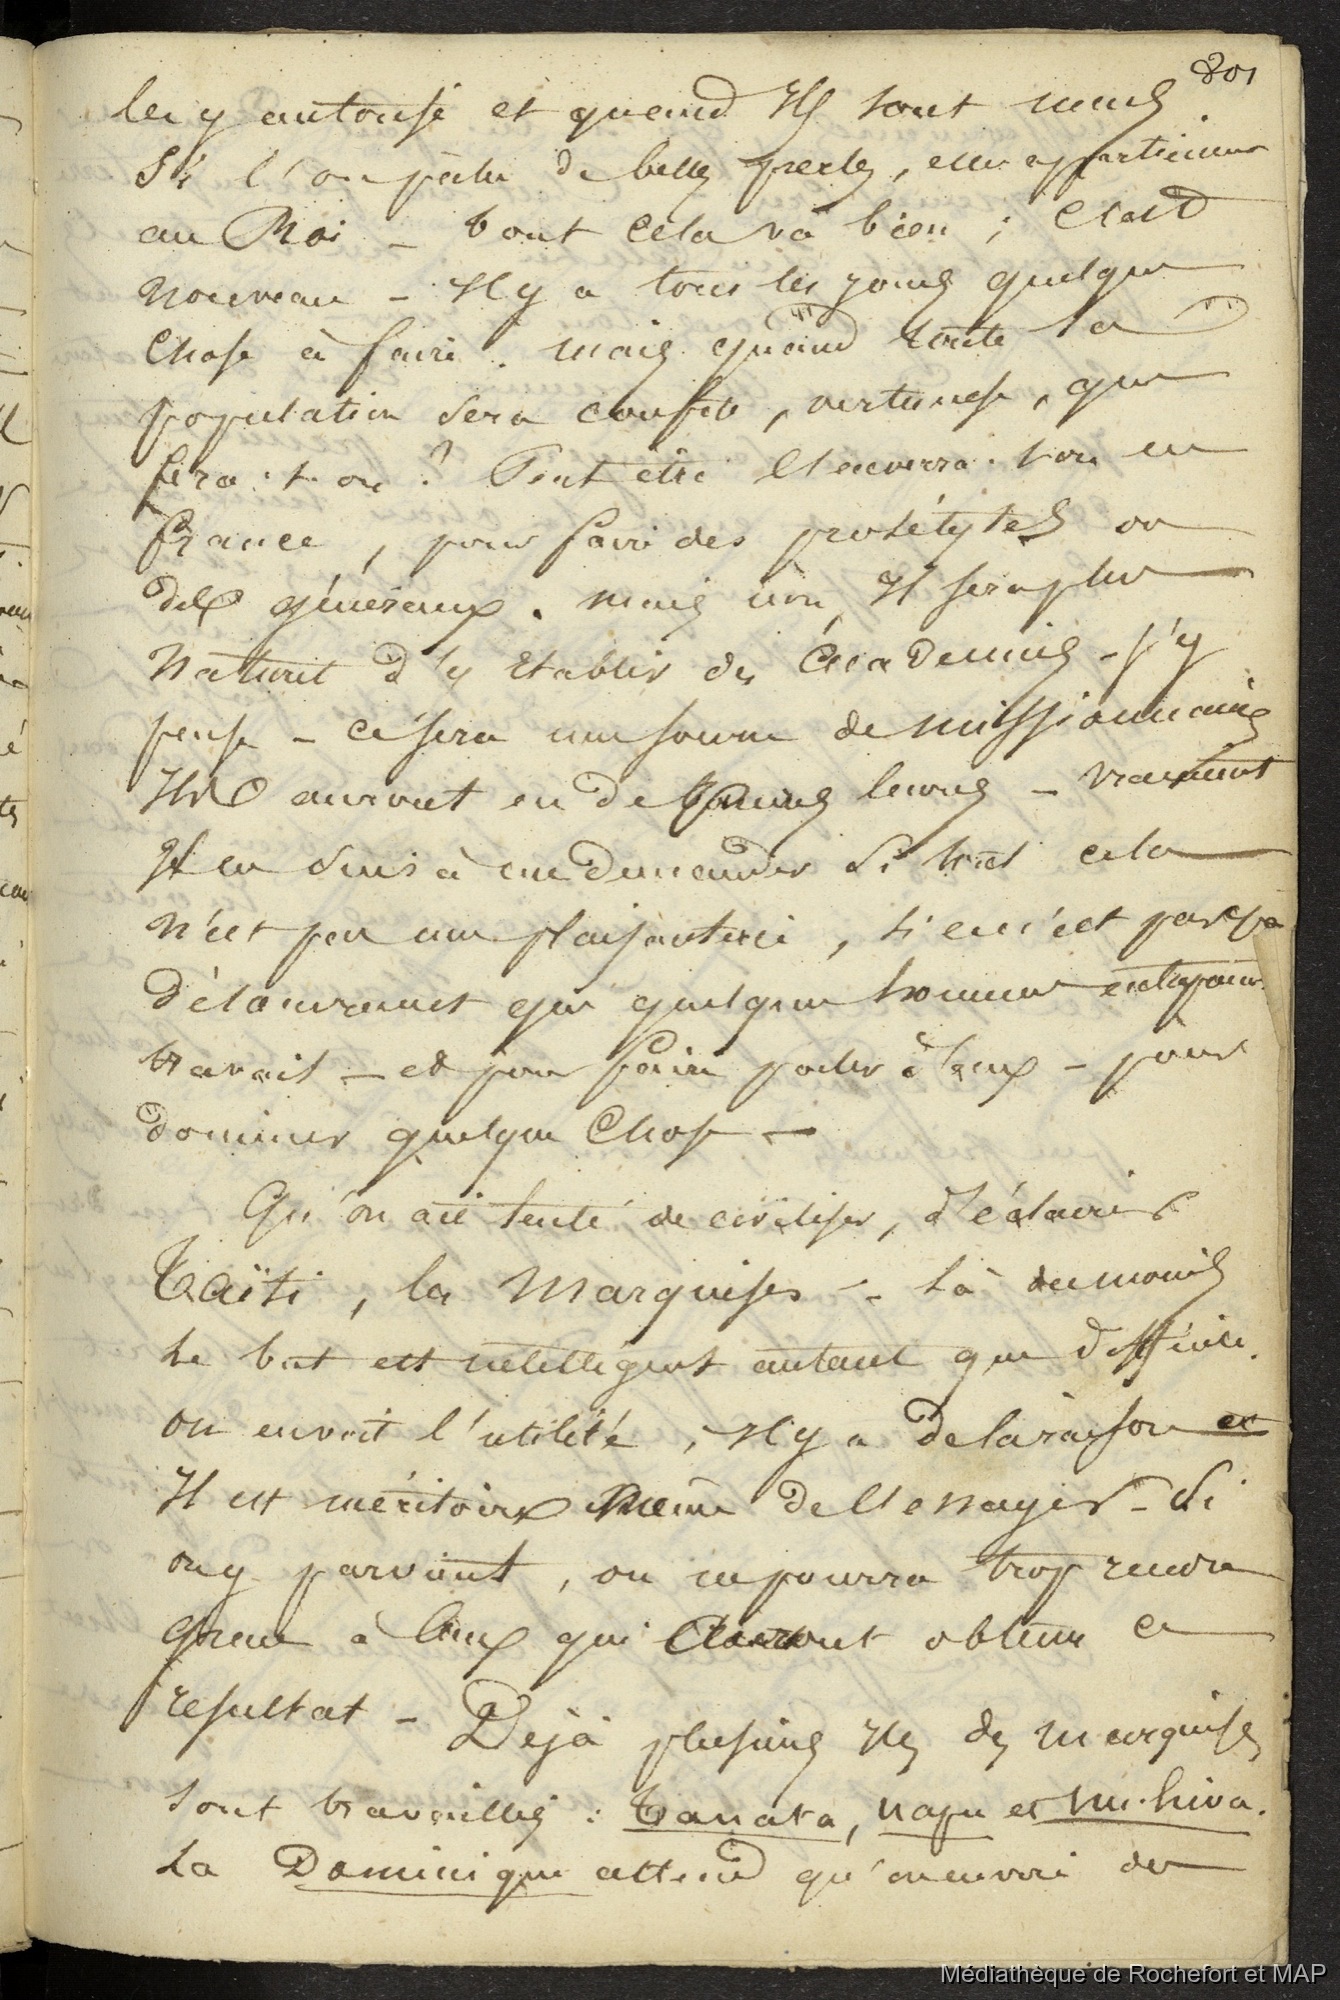 801
les y autorise et quand Ils sont nuds
Si l'on pèche de belles perles, elles appartiennent
au Roi - tout cela va bien ; C'est
nouveau - Il y a tous les jours quelque
Chose à faire. mais quand toute la
population sera confite, vertueuse, que
fera-t-on ? Peut être l'enverra-t-on en
france, pour faire des prosélytes ou
des généraux. mais non, Il sera plus
naturel d'y établir des Académies - j'y
pense - ce sera une source de missionnaires
Ils auront eu de bonnes leçons - vraiment
J'en suis à me demander si tout cela
n'est pas une plaisanterie, si ce n'est pas par
désœuvrement que quelques hommes ont
travail - et pour faire parler d'eux - pour
dominer quelque Chose -
Qu'on ait tenté de civiliser, d'éclairer
Taïti, les Marquises - là du moins
le but est intelligent autant que difficile.
on en voit l'utilité, Il y a de la raison et
Il est méritoire même de l'essayer - Si
on y parvient, on ne pourra trop rendre
grâce à Ceux qui auront obtenu ce
résultat - Déjà plusieurs Iles des marquises
sont travaillées : Tanata, Uapu et Nu-hiva.
La Dominique attend qu'on envoie des
Médiathèque de Rochefort et MAP